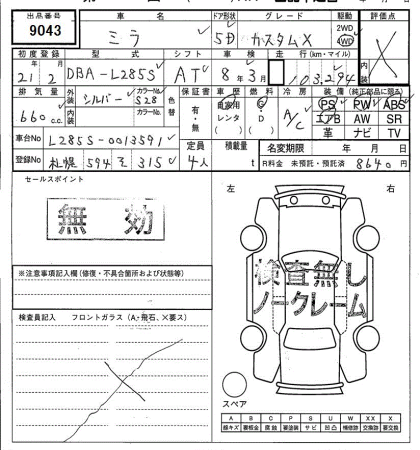 出品番号 車名 ドア形状 グレード 駆動 評価点
9043 ミラ 5D カスタムX 2WD 4WD X
初度登録 型式 シフト 車検 走行(km・マイル)
21 2 DBA-L285S AT 8年3月 103,294
排気量 外装 カラーNo. 色替 保証書 車歴 燃料 冷房 装備(純正部品に限る)
660cc シルバー S28 有・無 自家用 レンタ G・D A/C PS PW ABS
内装 カラーNo. エアB AW SR
革 ナビ TV
車台No L285S-0013591 定員 積載量 名変期限 年 月 日
登録No 札幌 594 そ 3150 4人 t R料金 未預託・預託済 8640円
セールスポイント
無効
※注意事項記入欄(修復・不具合箇所および状態等)
検査員記入 フロントガラス(A:飛石、X要ス)
左 右
検査無し
ノークレーム
スペア
A B C P S U W X XX
線キズ 腐蝕 要塗装 サビ 凹凸 補修跡 交換跡